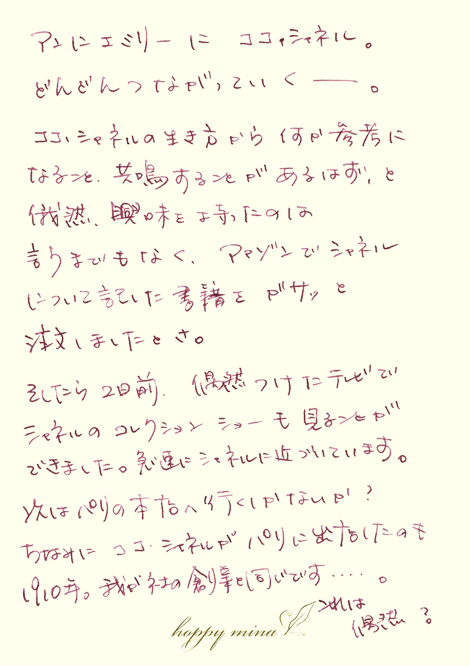 アンにエミリーに ココ・シャネル。
どんどんつながっていく ――。
ココ・シャネルの生き方から 何か参考に
なること、共鳴することが あるはず、と
俄然、興味を持ったのは
言うまでもなく、アマゾンでシャネル
について記した書籍を ガサッと
注文しましたとさ。
そしたら 2日前、偶然つけたテレビで
シャネルのコレクション ショーも見ることが
できました。急速にシャネルに近づいています。
次はパリの本店へ行くしかないか?
ちなみに ココ・シャネルが パリに出店したのも
1910年。我が社の創業と同じです‥‥。
これは
偶然?
happy mina